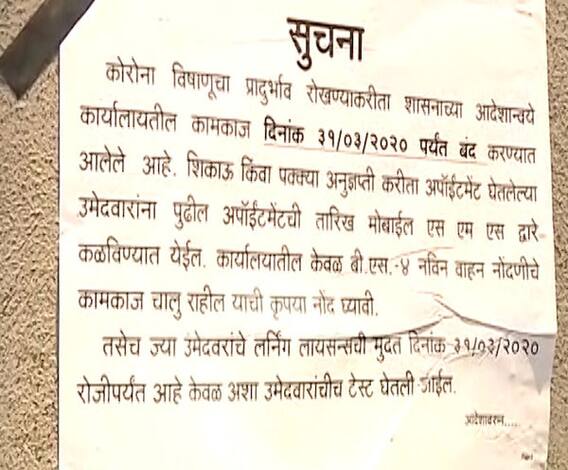 सुचना
कोरोना विषाणूचा प्रादुर्भाव रोखण्याकरीता शासनाच्या आदेशान्वये
कार्यालायतील कामकाज दिनांक ३१/०३/२०२० पर्यंत बंद करण्यात
आलेले आहे. शिकाऊ किंवा पक्क्या अनुज्ञप्ती करीता अपॉईंटमेंट घेतलेल्या
उमेदवारांना पुढील अपॉईंटमेंटची तारिख मोबाईल एस एम एस द्वारे
कळविण्यात येईल. कार्यालयातील केवळ बी.एस.-४ नविन वाहन नोंदणीचे
कामकाज चालु राहील याची कृपया नोंद घ्यावी.
तसेच ज्या उमेदवरांचे लर्निंग लायसन्सची मुदत दिनांक ३१/०३/२०२०
रोजीपर्यंत आहे केवळ अशा उमेदवारांचीच टेस्ट घेतली जाईल.
आदेशावरुन.....